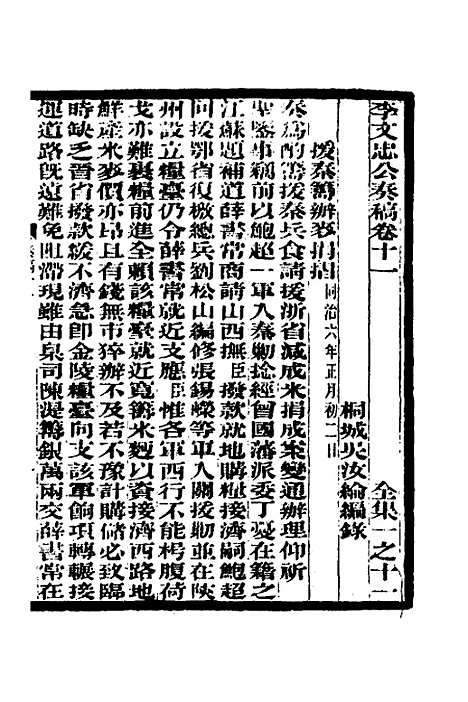 李文忠公奏稿卷十一
全集一之十一
桐城吳汝綸編錄
援秦籌辦米捐摺同治六年正月初二日
奏爲酌籌援秦兵食請援浙省減成米捐成案變通辦理仰祈
聖鑒事竊前以鮑超一軍入秦勦捻經曾國藩派委丁憂在籍之
江蘇題補道薛書常商請山西撫臣撥款就地購糧接濟嗣鮑超
回援鄂省復檄總兵劉松山編修張錫嶸等軍入關援勦並在陝
州設立糧臺仍令薛書常就近支應臣惟各軍西行不能枵腹荷
戈亦難裹糧前進全賴該糧臺就近寬籌米麪以資接濟西路地
鮮產米麥價亦昂且有錢無市猝辦不及若不豫計購儲必致臨
時缺乏晉省撥款緩不濟急卽金陵糧臺向支該軍餉項轉輾接
運道路旣遠難免阻滯現雖由臬司陳湜籌銀萬兩交薛書常在